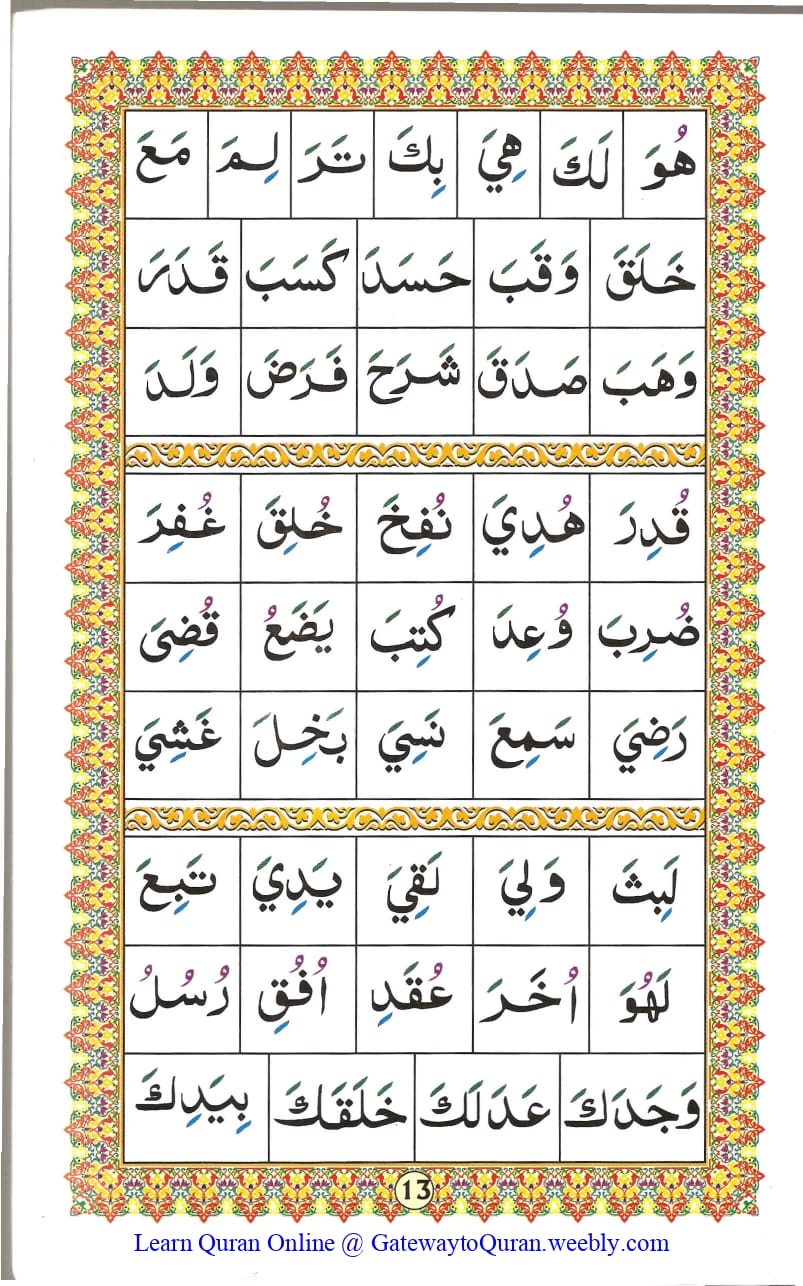 هُوَ لَكَ هِيَ بِكَ تَرَ لِمَ مَعَ
خَلَقَ وَقَبَ حَسَدَ كَسَبَ قَدَرَ
وَهَبَ صَدَقَ شَرَحَ فَرَضَ وَلَدَ
قُدِرَ هُدِيَ نُفِخَ خُلِقَ غُفِرَ
ضُرِبَ وُعِدَ كُتِبَ يَضَعُ قُضِىَ
رَضِيَ سَمِعَ نَسِيَ بَخِلَ غَشِيَ
لَبِثَ وَلِيَ لَقِيَ يَدِيَ تَبِعَ
لَهُوَ اُخَرَ عُقَدِ اُفُقِ رُسُلُ
وَجَدَكَ عَدَلَكَ خَلَقَكَ بِيَدِكَ
13
Learn Quran Online @ GatewaytoQuran.weebly.com